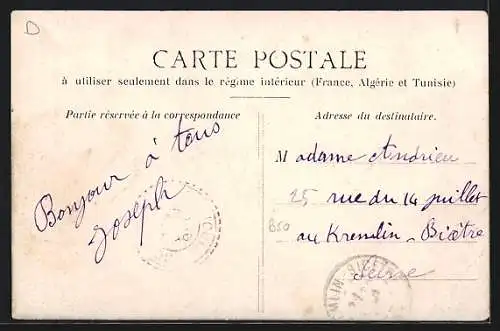 D
CARTE POSTALE
à utiliser seulement dans le régime intérieur (France, Algérie et Tunisie)
Partie réservée à la correspondance
Adresse du destinataire.
Bonjour à tous
Joseph
Madame Andrieu
25 rue du 14 juillet
au Kremlin-Bicêtre
Seine
B50